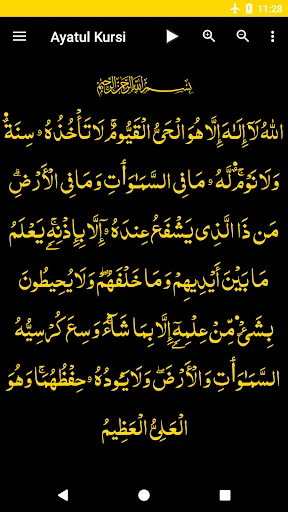 11:28
Ayatul Kursi
بِسْمِ اللَّهِ الرَّحْمَٰنِ الرَّحِيمِ
اللهُ لَآ إِلَـٰهَ إِلَّا هُوَ الْحَيُّ الْقَيُّومُ ۚ لَا تَأْخُذُهُۥ سِنَةٌ
وَلَا نَوْمٌ ۚ لَّهُۥ مَا فِي السَّمَـٰوَٰتِ وَمَا فِي الْأَرْضِ ۗ
مَن ذَا الَّذِي يَشْفَعُ عِندَهُۥٓ إِلَّا بِإِذْنِهِۦ ۚ يَعْلَمُ
مَا بَيْنَ أَيْدِيهِمْ وَمَا خَلْفَهُمْ ۖ وَلَا يُحِيطُونَ
بِشَيْءٍ مِّنْ عِلْمِهِۦٓ إِلَّا بِمَا شَآءَ ۚ وَسِعَ كُرْسِيُّهُ
السَّمَـٰوَٰتِ وَالْأَرْضَ ۖ وَلَا يَـُٔودُهُۥ حِفْظُهُمَا ۚ وَهُوَ
الْعَلِيُّ الْعَظِيمُ